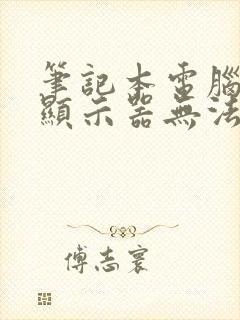 筆記本電腦
顯示器無法
傅志寰